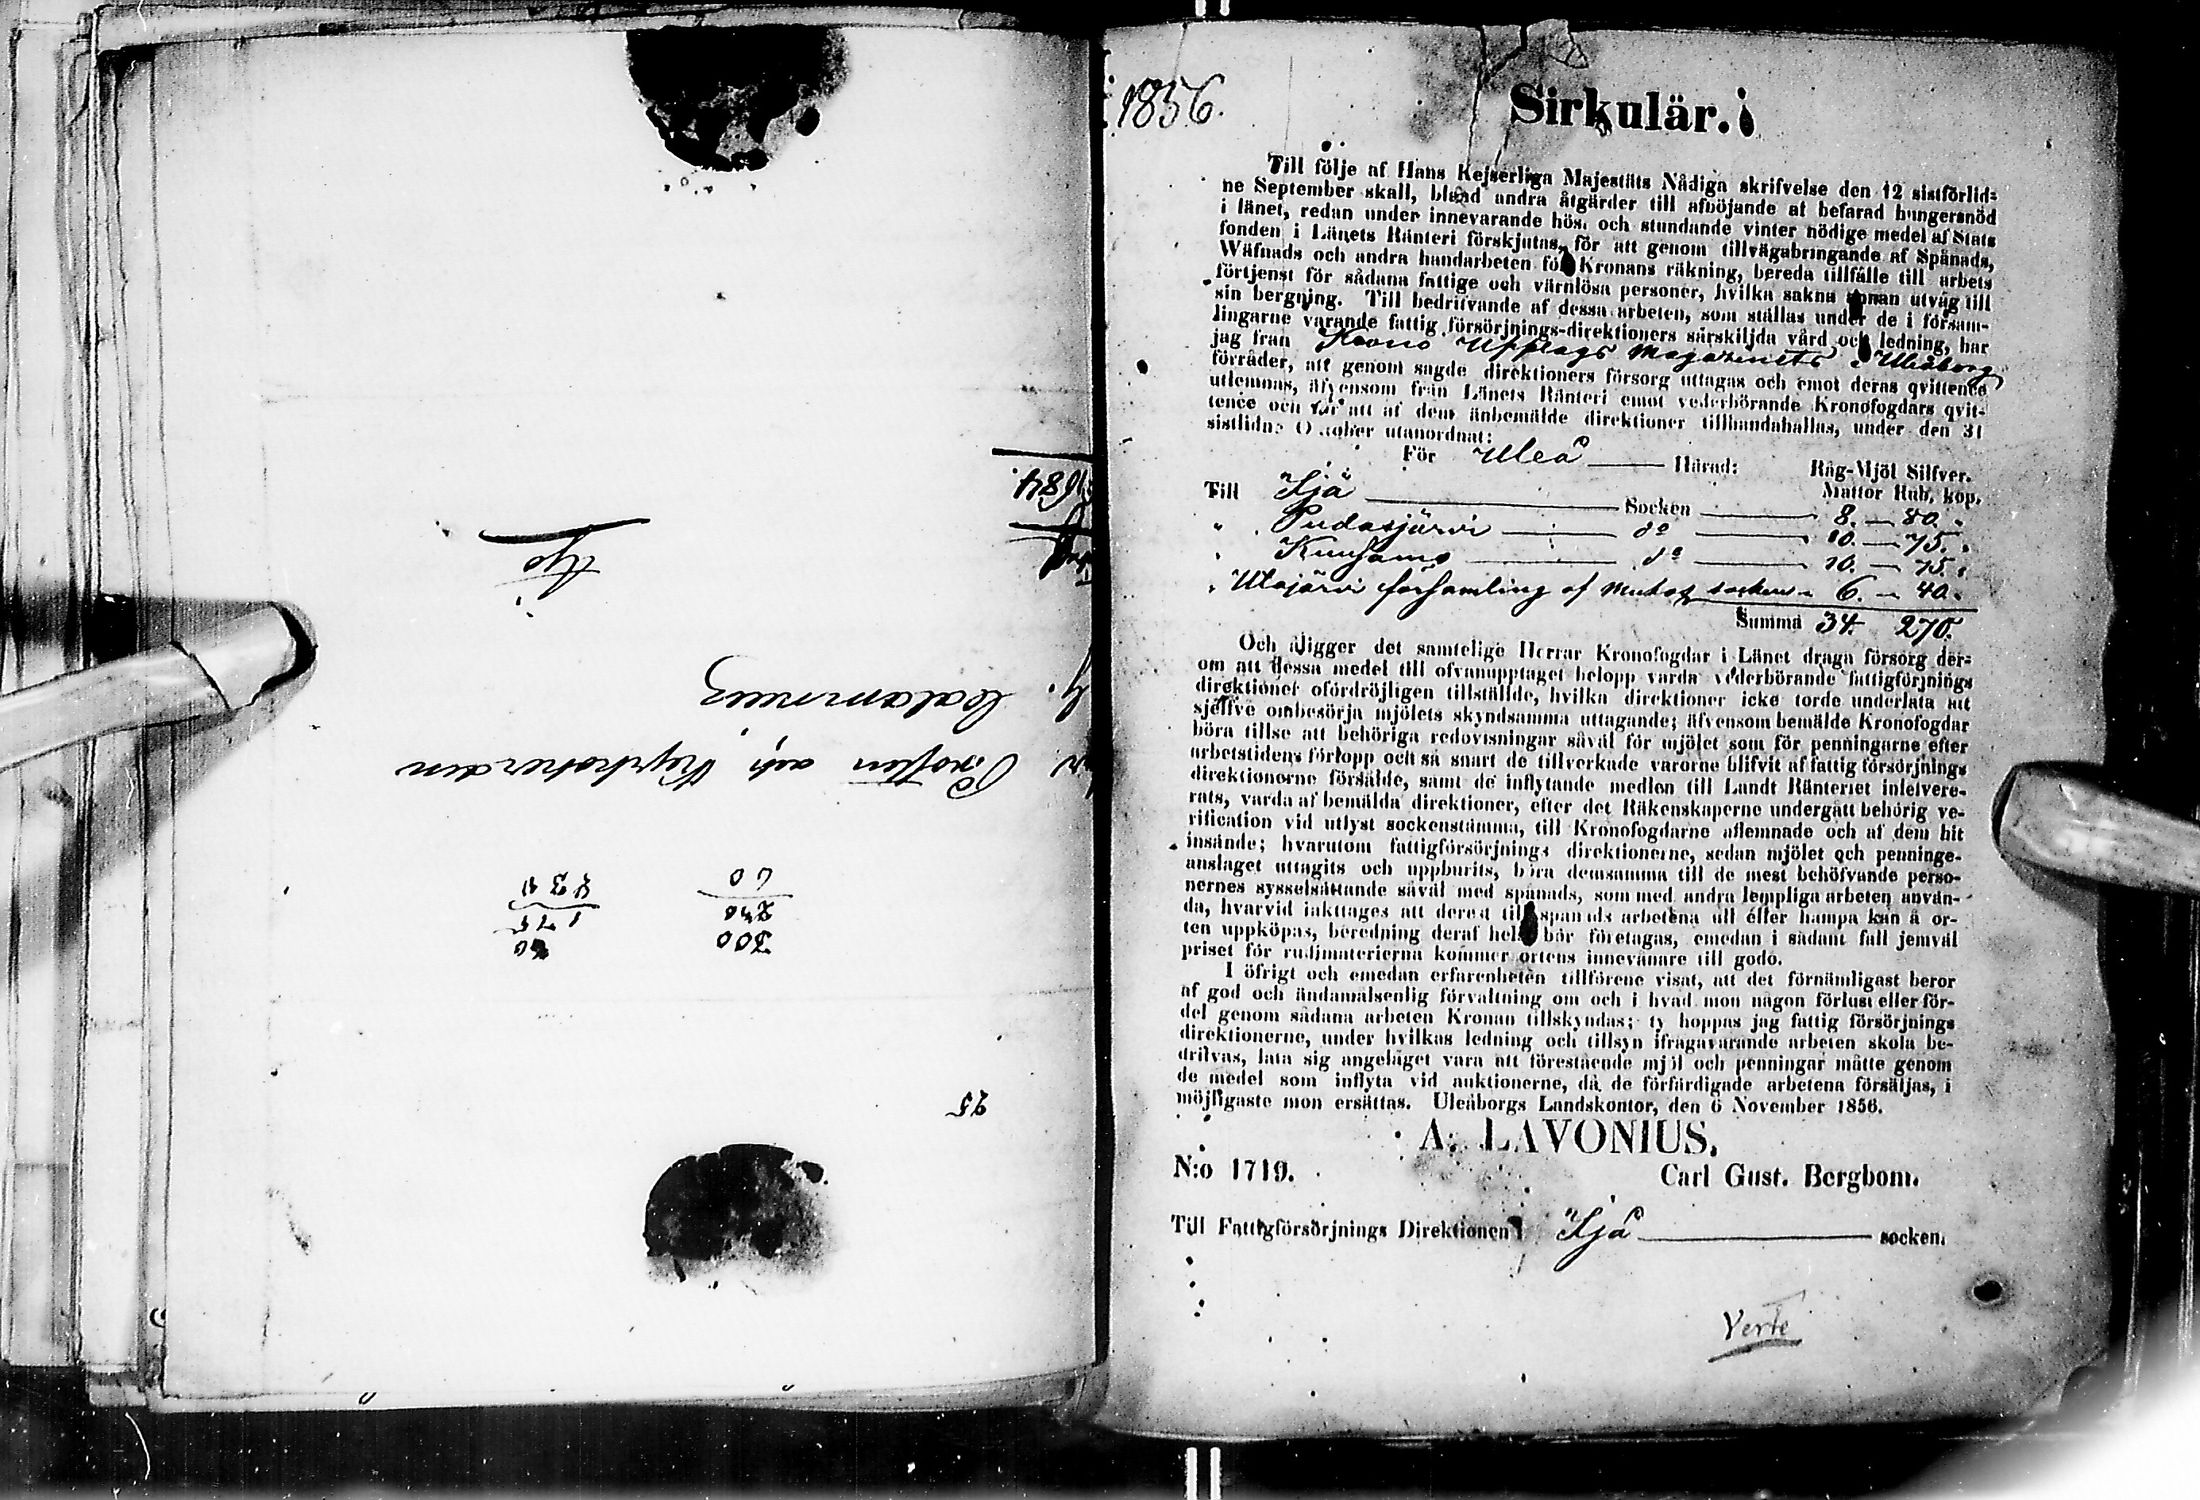 1684.
Prosten och Kyrkoherden
Calamnius
Ijo
300
240
60
60
175
25
1856.
Sirkulär.
Till följe af Hans Kejserliga Majestäts Nådiga skrifvelse den 12 sistförlid=
ne September skall, bland andra åtgärder till afböjande af befarad hungersnöd
i länet, redan under innevarande höst och stundande vinter nödige medel af Stats
fonden i Länets Ränteri förskjutas, för att genom tillvägabringande af Spånads,
Wäfnads och andra handarbeten för Kronans räkning, bereda tillfälle till arbets
förtjenst för sådana fattige och värnlösa personer, hvilka sakna annan utväg till
sin bergning. Till bedrifvande af dessa arbeten, som ställas under de i försam-
lingarne varande fattig försörjnings-direktioners särskiljda vård och ledning, har
jag från Krono Upplags Magazinets i Uleåborg
förråder, att genom sagde direktioners försorg uttagas och emot deras qvittence
utlemnas, äfvensom från Länets Ränteri emot vederbörande Kronofogdars qvit-
tence och för att af dem änbemälde direktioner tillhandahållas, under den 31
sistlidne October utanordnat:
För Uleå Härad: Råg-Mjöl Silfver.
Mattor Rub. kop.
Till Ijå Socken 8. — 80. "
" Pudasjärvi do 10. — 75. "
" Kuusamo do 10. — 75. "
" Utajärvi församling af Muhos socken 6. — 40. "
Summa 34. 270.
Och åligger det samtelige Herrar Kronofogdar i Länet draga försorg der=
om att dessa medel till ofvanupptaget belopp varda vederbörande fattigförjnings
direktioner ofördröjligen tillställde, hvilka direktioner icke torde underlåta att
sjelfve ombesörja mjölets skyndsamma uttagande; äfvensom bemälde Kronofogdar
böra tillse att behöriga redovisningar såväl för mjölet som för penningarne efter
arbetstidens förlopp och så snart de tillverkade varorne blifvit af fattig försörjnings
direktionerne försålde, samt de inflytande medlen till Landt Ränteriet inlefvere-
rats, varda af bemälda direktioner, efter det Räkenskaperne undergått behörig ve-
rification vid utlyst sockenstämma, till Kronofogdarne aflemnade och af dem hit
insände; hvarutom fattigförsörjnings direktionerne, sedan mjölet och penninge-
anslaget uttagits och uppburits, böra densamma till de mest behöfvande perso-
nernes sysselsättande såväl med spånads, som med andra lempliga arbeten använ-
da, hvarvid iakttages att derest till spånads arbetena ull eller hampa kan å or-
ten uppköpas, beredning deraf helst bör företagas, emedan i sådant fall jemväl
priset för rudimaterierna kommer ortens innevånare till godo.
I öfrigt och emedan erfarenheten tillförene visat, att det förnämligast beror
af god och ändamålsenlig förvaltning om och i hvad mon någon förlust eller för-
del genom sådana arbeten Kronan tillskyndas; ty hoppas jag fattig försörjnings
direktionerne, under hvilkas ledning och tillsyn ifrågavarande arbeten skola be-
drifvas, låta sig angeläget vara att förestående mjöl och penningar måtte genom
de medel som inflyta vid auktionerne, då de förfärdigade arbetena försäljas, i
möjligaste mon ersättas. Uleåborgs Landskontor, den 6 November 1856.
A. LAVONIUS.
N:o 1719. Carl Gust. Bergbom.
Till Fattigförsörjnings Direktionen i Ijå socken.
Verte